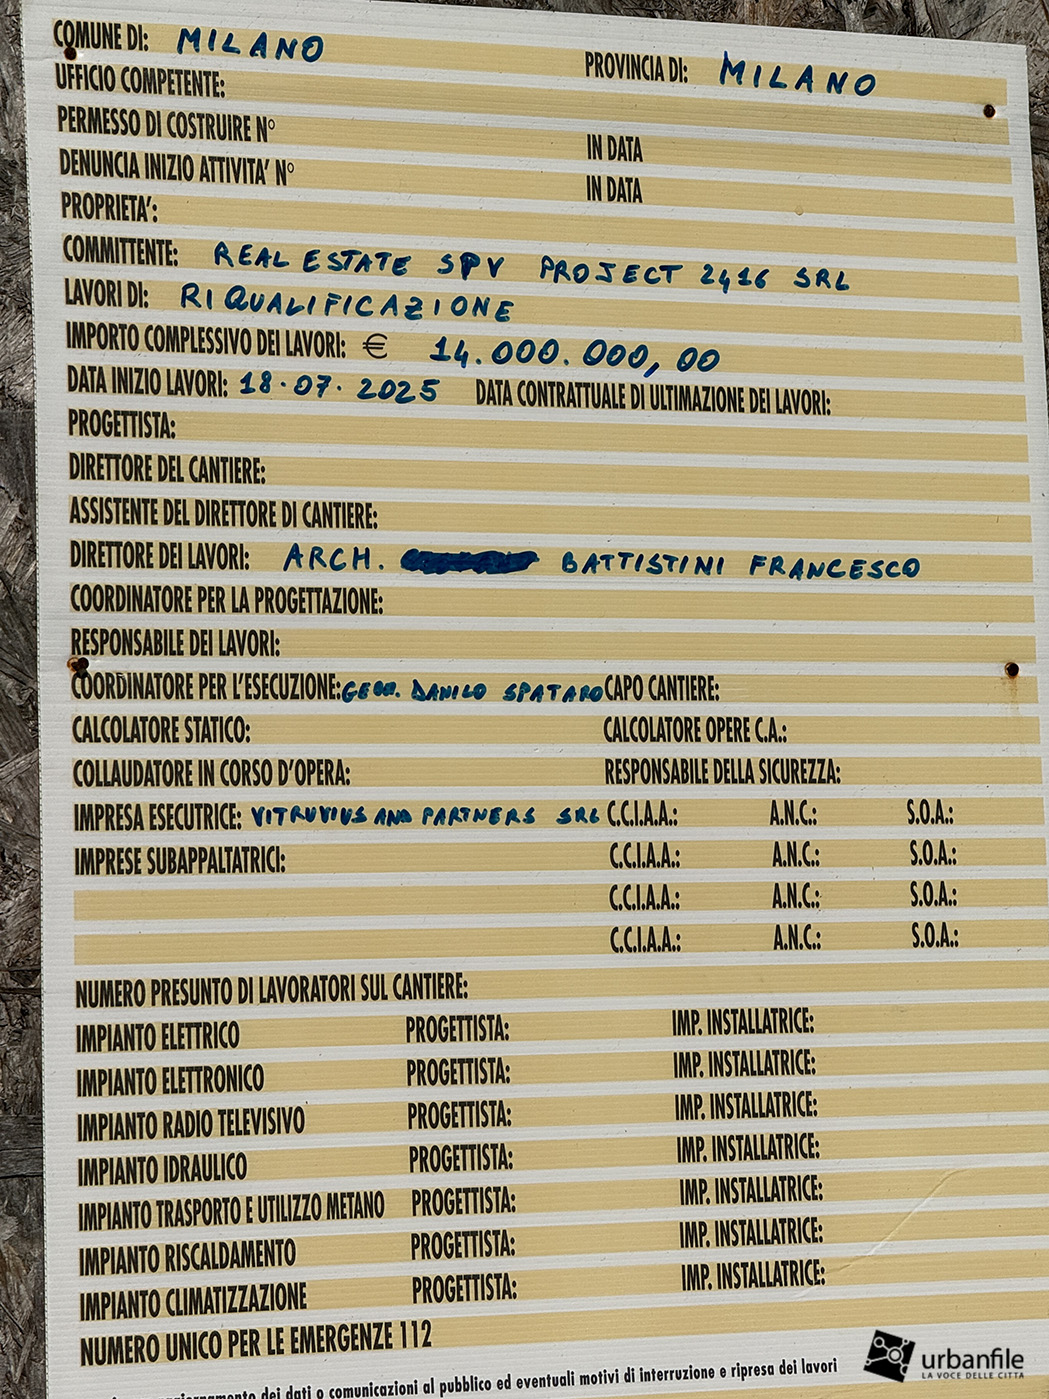 COMUNE DI: MILANO PROVINCIA DI: MILANO
UFFICIO COMPETENTE:
PERMESSO DI COSTRUIRE N° IN DATA
DENUNCIA INIZIO ATTIVITA' N° IN DATA
PROPRIETA':
COMMITTENTE: REAL ESTATE SPV PROJECT 2416 SRL
LAVORI DI: RIQUALIFICAZIONE
IMPORTO COMPLESSIVO DEI LAVORI: € 14.000.000,00
DATA INIZIO LAVORI: 18.07.2025 DATA CONTRATTUALE DI ULTIMAZIONE DEI LAVORI:
PROGETTISTA:
DIRETTORE DEL CANTIERE:
ASSISTENTE DEL DIRETTORE DI CANTIERE:
DIRETTORE DEI LAVORI: ARCH. BATTISTINI FRANCESCO
COORDINATORE PER LA PROGETTAZIONE:
RESPONSABILE DEI LAVORI:
COORDINATORE PER L'ESECUZIONE: GEOM. DANILO SPATARO CAPO CANTIERE:
CALCOLATORE STATICO: CALCOLATORE OPERE C.A.:
COLLAUDATORE IN CORSO D'OPERA: RESPONSABILE DELLA SICUREZZA:
IMPRESA ESECUTRICE: VITRUVIUS AND PARTNERS SRL C.C.I.A.A.: A.N.C.: S.O.A.:
IMPRESE SUBAPPALTATRICI: C.C.I.A.A.: A.N.C.: S.O.A.:
C.C.I.A.A.: A.N.C.: S.O.A.:
C.C.I.A.A.: A.N.C.: S.O.A.:
NUMERO PRESUNTO DI LAVORATORI SUL CANTIERE:
IMPIANTO ELETTRICO PROGETTISTA: IMP. INSTALLATRICE:
IMPIANTO ELETTRONICO PROGETTISTA: IMP. INSTALLATRICE:
IMPIANTO RADIO TELEVISIVO PROGETTISTA: IMP. INSTALLATRICE:
IMPIANTO IDRAULICO PROGETTISTA: IMP. INSTALLATRICE:
IMPIANTO TRASPORTO E UTILIZZO METANO PROGETTISTA: IMP. INSTALLATRICE:
IMPIANTO RISCALDAMENTO PROGETTISTA: IMP. INSTALLATRICE:
IMPIANTO CLIMATIZZAZIONE PROGETTISTA: IMP. INSTALLATRICE:
NUMERO UNICO PER LE EMERGENZE 112
dei dati o comunicazioni al pubblico ed eventuali motivi di interruzione e ripresa dei lavori
urbanfile
LA VOCE DELLE CITTÀ